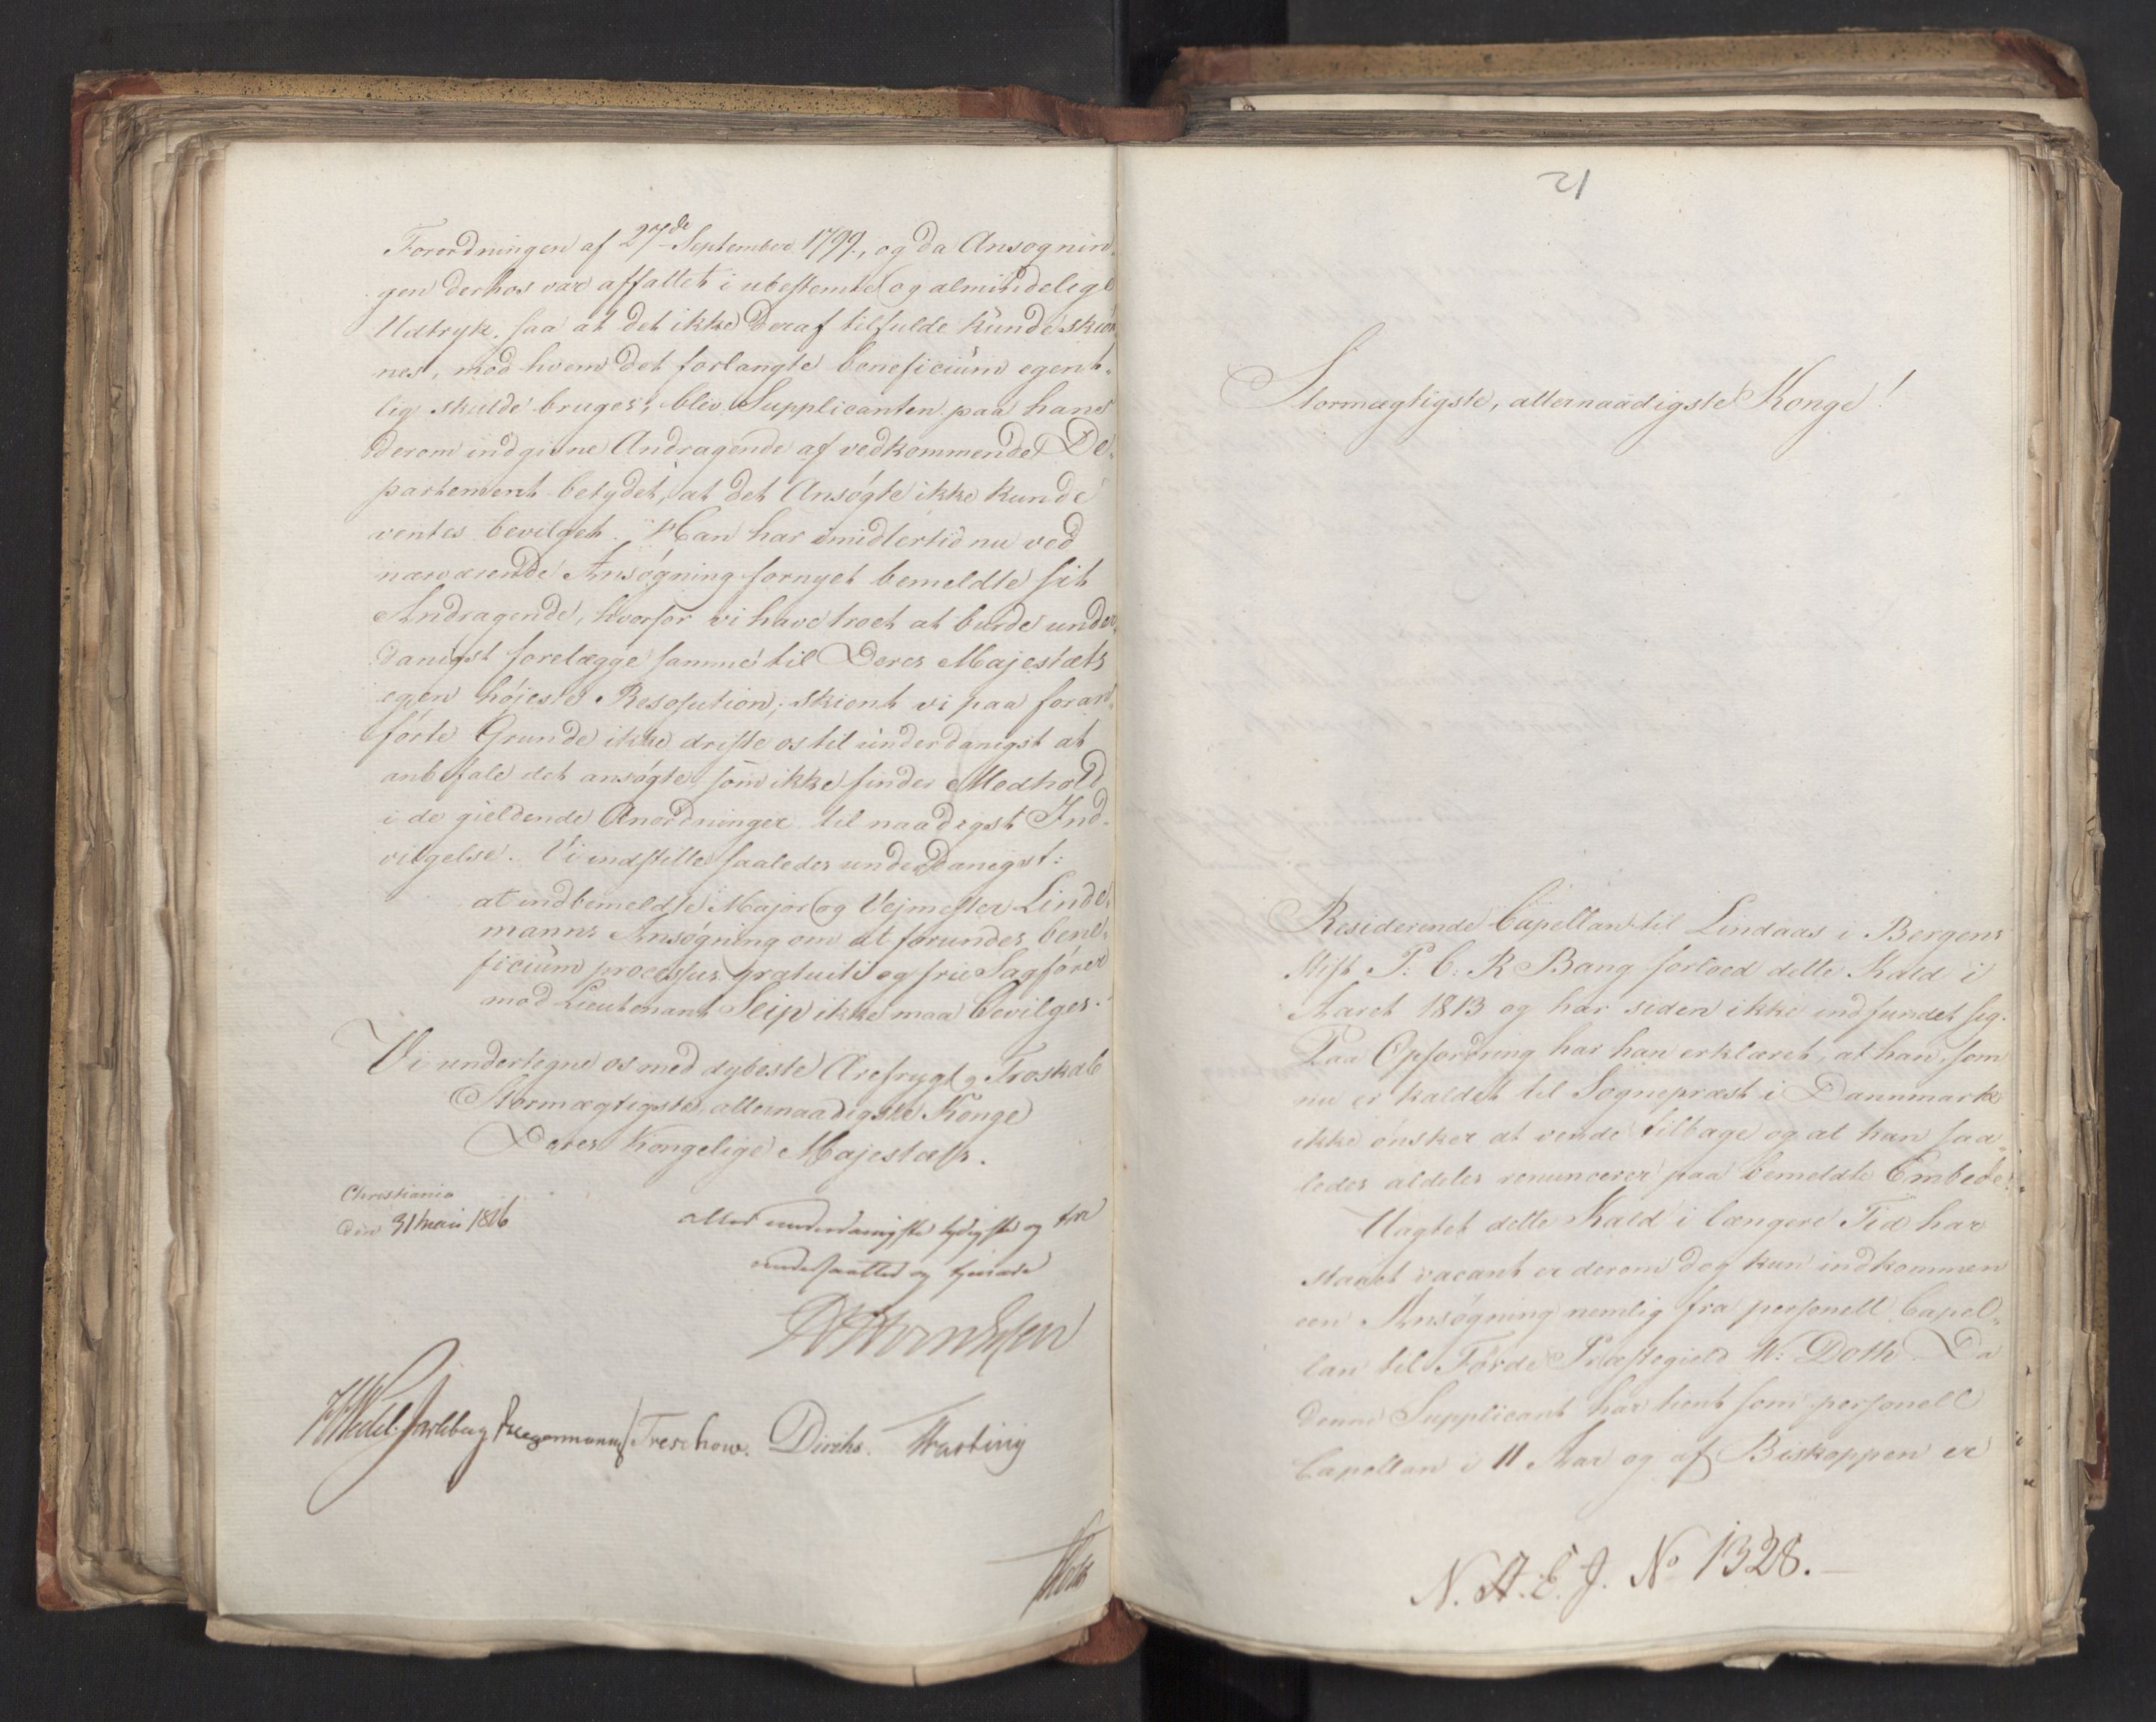 Forordningen af 27de September 1799, og da Ansøgnin„
gen derhos var affattet i ubestemte og almindelige
Udtryk, saa at det ikke deraf tilfulde kunde skiøn„
nes, mod hvem det forlangte beneficium egent„
lig skulde bruges, blev Supplicanten paa hans
derom indgivne Andragende af vedkommende De„
partement betydet, at det Ansøgte ikke kunde
ventes bevilget. Han har imidlertid nu ved
nærværende Ansøgning fornyet bemeldte sit
Andragende, hvorfor vi have troet at burde under„
danigst forelægge samme til Deres Majestæts
egen højeste Resolution, skiønt vi paa foran„
førte Grunde ikke driste os til underdanigst at
anbefale det ansøgte, som ikke finder Medhold
i de gieldende Anordninger til naadigst Ind„
vilgelse. Vi indstille saaledes underdanigst:
at indbemeldte Major og Vejmester Linde„
manns Ansøgning om at forundes bene„
ficium processus gratuiti og frie Sagfører
mod Lieutenant Seip ikke maa bevilges.
Vi undertegne os med dybeste Ærefrygt og Troskab
Stormægtigste, allernaadigste Konge
Deres Kongelige Majestæts.
Christiania
den 31 maii 1816
allerunderdanigste lydigste og tro
undersaatter og tjenere
HWedel-Jarlsberg Krogmann Treschow. Diriks. Hasting
21
Stormægtigste, allernaadigste Konge!
Residerende Capellan til Lindaas i Bergens
Stift P: C: R Bang forlod dette Kald i
Aaret 1813 og har siden ikke indfundet sig.
Paa Opfordring har han erklæret, at han, som
nu er kaldet til Sognepræst i Dannmark
ikke ønsker at vende tilbage og at han saa„
ledes aldeles renuncerer paa bemeldte Embede.
Uagtet dette Kald i længere Tid har
staaet vacant er derom dog kun indkommen
een Ansøgning nemlig fra personell Capel„
lan til Førde Præstegield N: Doth. Da
denne Supplicant har tient som personell
Capellan i 11 Aar og af Biskoppen er
N. A. E. J. No 1328.